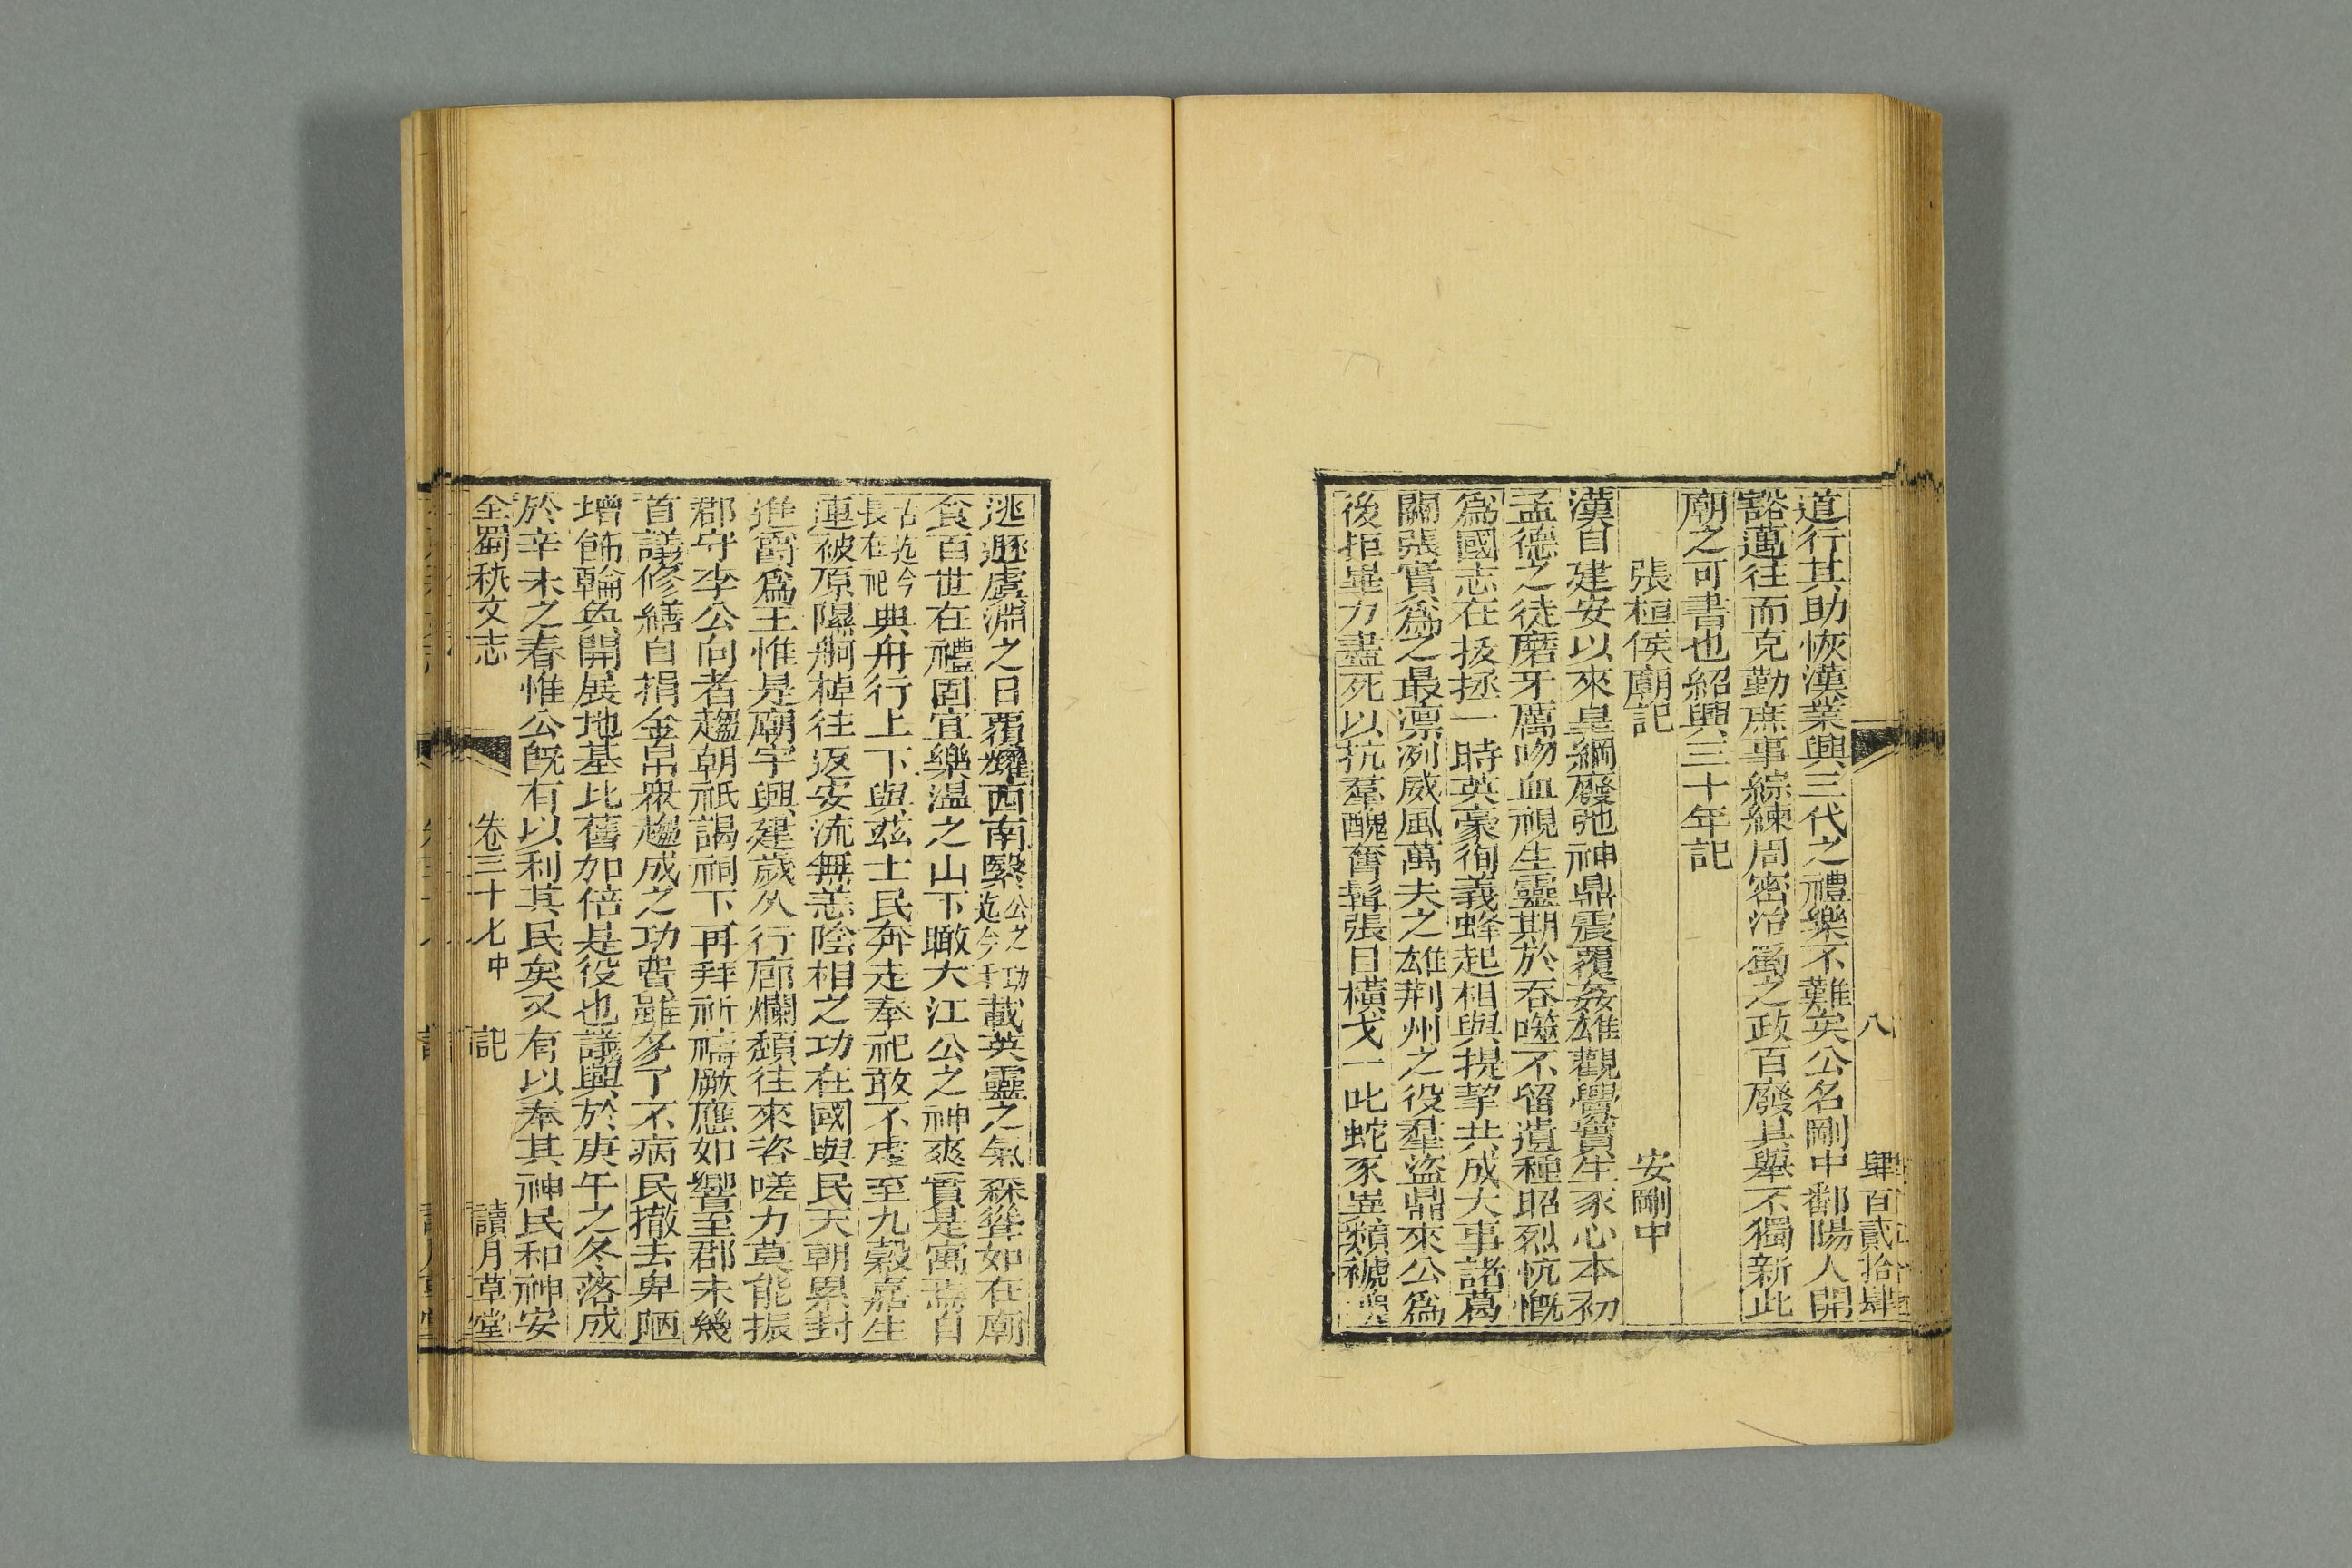 八　肆百貳拾肆
道行其助恢漢業興三代之禮樂不難矣公名剛中鄱陽人開
豁邁往而克勤庶事綜練周密治蜀之政百廢具舉不獨新此
廟之可書也紹興三十年記
張桓侯廟記　安剛中
漢自建安以來皇綱廢弛神鼎震覆姦雄觀釁實生豕心本初
孟德之徒磨牙厲吻血視生靈期於吞噬不留遺種昭烈忼慨
為國志在拔拯一時英豪徇義蜂起相與提挈共成大事諸葛
關張實爲之最凛冽威風萬夫之雄荆州之役羣盜鼎來公爲
後拒畢力盡死以抗羣醜奮髯張目橫戈一叱蛇豕異類褫魄
逃遯虞淵之日覆燿西南繄公之功迄今千載英靈之氣森聳如在廟
食百世在禮固宜樂温之山下瞰大江公之神爽實是寓焉自
古迄今長在祀典舟行上下與茲士民奔走奉祀敢不虔至九穀嘉生
連被原隰舸棹往返安流無恙陰相之功在國與民天朝累封
進爵爲王惟是廟宇興建歲久行廊爛頹往來咨嗟力莫能振
郡守李公向者趨朝祇謁祠下再拜祈禱厥應如響至郡未幾
首議修繕自捐金帛衆趨成之功費雖多了不病民撤去卑陋
增飾輪奐開展地基比舊加倍是役也議興於庚午之冬落成
於辛未之春惟公旣有以利其民矣又有以奉其神民和神安
全蜀秇文志　卷三十七中　記　讀月草堂